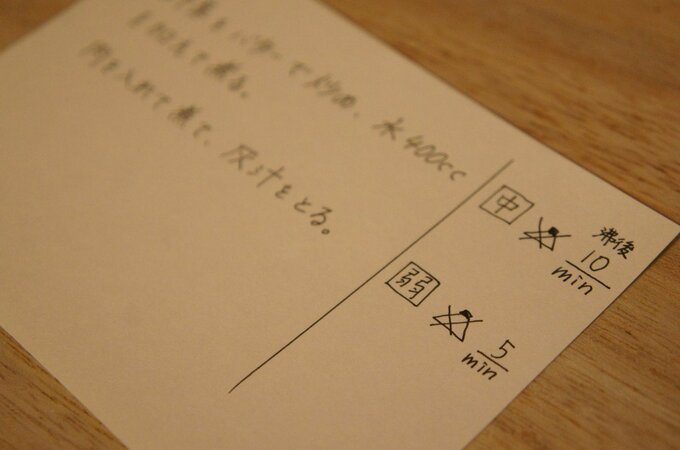 バターで炒め、水400cc
で煮る。
肉を入れて煮て、灰汁をとる。
中
沸後
10
min
弱
5
min